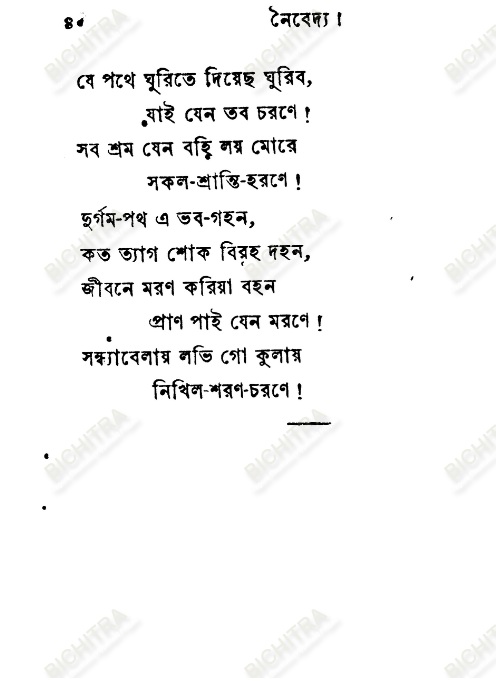 ৪০ নৈবেদ্য।
যে পথে ঘুরিতে দিয়েছ ঘুরিব,
যাই যেন তব চরণে!
সব শ্রম যেন বহি লয় মোরে
সকল-শ্রান্তি-হরণে!
দুর্গম-পথ এ ভব-গহন,
কত ত্যাগ শোক বিরহ দহন,
জীবনে মরণ করিয়া বহন
প্রাণ পাই যেন মরণে!
সন্ধ্যাবেলায় লভি গো কুলায়
নিখিল-শরণ-চরণে!
BICHITRA